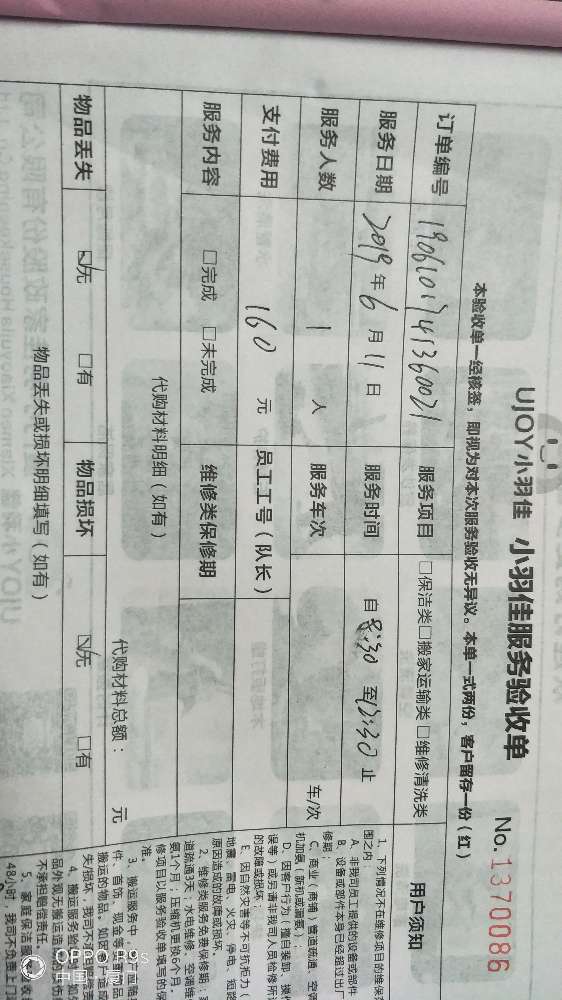 UJOY小羽佳 小羽佳服务验收单 No.1370086
本验收单一经核签，即视为对本次服务验收无异议。本单一式两份，客户留存一份（红）
订单编号 19061017141360021 服务项目 □保洁类□搬家运输类□维修清洗类 用户须知
服务日期 2019年6月11日 服务时间 自8:30至12:30止
服务人数 1人 服务车次 车/次
支付费用 160元 员工工号（队长）
服务内容 □完成 □未完成 维修类保修期
代购材料明细（如有）
代购材料总额： 元
物品丢失 ☑无 □有 物品损坏 ☑无 □有
物品丢失或损坏明细填写（如有）
1、下列情况不在维修项目的维保
围之内：
A、非我司员工提供的设备或部件
B、设备或部件本身已经超过出厂
修期；
C、商业（商铺）管道疏通，空调
机加氨（新机或漏氨）；
D、因客户行为（擅自装卸、操作
误等）或另请非我司人员检修所
的故障或损坏；
E、因自然灾害等不可抗拒力（
地震、雷电、火灾、停电、短路
原因造成的故障或损坏。
2、维修类服务免费保修期：
道疏通3天；水电维修、空调维
氨1个月；压缩机更换6个月。
修项目以服务验收单填写的保
准。
3、搬运服务中，
件、首饰、现金等
搬运的物品。如因
失/损坏，我司不承担
4、搬运服务验
品外观无搬运造
不承担赔偿责任。
5、家庭保洁服
48小时，我司不负责上门
OPPO R9s